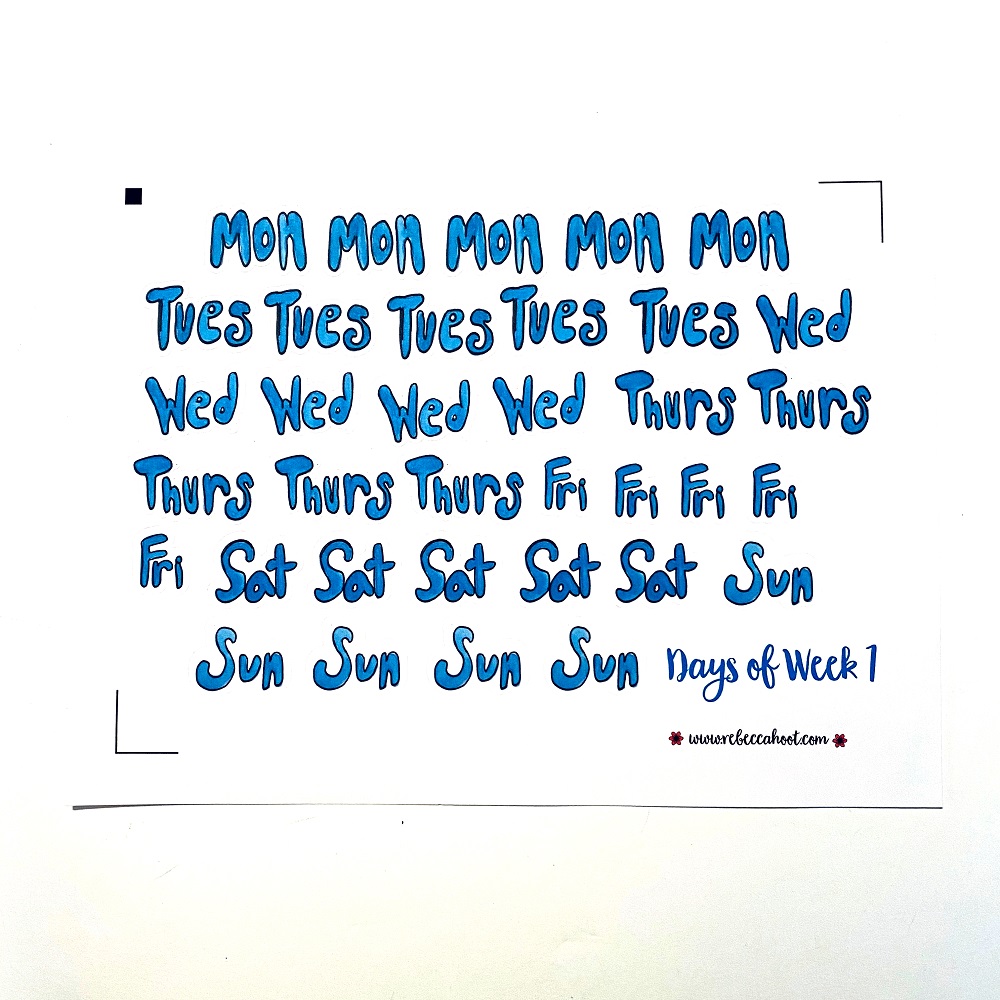 Mon Mon Mon Mon Mon
Tues Tues Tues Tues Tues Wed
Wed Wed Wed Wed Thurs Thurs
Thurs Thurs Thurs Fri Fri Fri Fri
Fri Sat Sat Sat Sat Sat Sun
Sun Sun Sun Sun Days of Week 1
www.rebeccahoot.com